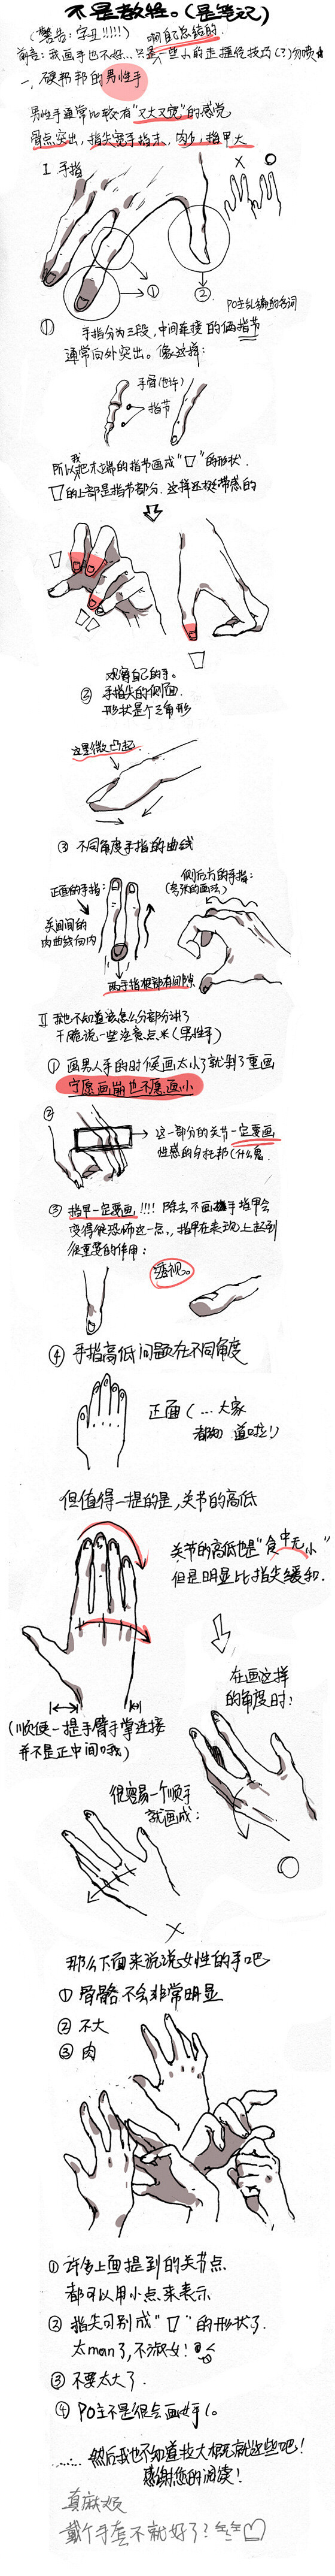 不是教程。(是笔记)
(警告:字丑!!!!!) 啊自己总结的.
前言:我画手也不好…只是一些小的走捷径技巧(?)勿喷
一、硬邦邦的男性手
男性手通常比较有"又大又宽"的感觉
骨点突出,指尖宽手指末,肉少,指甲大
I 手指
X O
① ②
PO主乱编的名词
① 手指分为三段,中间连接的俩指节
通常向外突出。像这样:
手骨(也许)
指节
所以我把末端的指节画成"▽"的形状.
▽的上部是指节部分.这样还挺带感的
观察自己的手。
② 手指尖的侧面.
形状是个三角形
这里微凸起.
③ 不同角度手指的曲线
正面的手指:
关节间的
内曲线向内
侧后方的手指:
(夸张的画法)
两手指根部有间隙
II 我也不知道该怎么分部分讲了
干脆说一些注意点米(男性手)
① 画男人手的时候画太小了就剁了重画
宁愿画崩也不愿画小
②
这一部分的关节一定要画
性感的分托邦(什么鬼
③ 指甲一定要画!!!! 除去不画指甲手会
变得很恐怖这一点,指甲在表现上起到
很重要的作用:
透视。
④ 手指高低问题在不同角度
正面(…大家
都知道啦!)
但值得一提的是,关节的高低
关节的高低也是"食中无小"
但是明显比指尖缓和.
(顺便一提手臂手掌连接
并不是正中间哦)
在画这样
的角度时:
很容易一个顺手
就画成:
X
那么下面来说说女性的手吧
① 骨骼不会非常明显
② 不大
③ 肉
① 许多上面提到的关节点
都可以用小点来表示
② 指尖可别成"▽"的形状了.
太man了,不淑女!
③ 不要太大了.
④ PO主不是很会画女手。
…… 然后我也不知道拉大概就这些吧!
感谢您的阅读!
真麻烦
戴个手套不就好了?